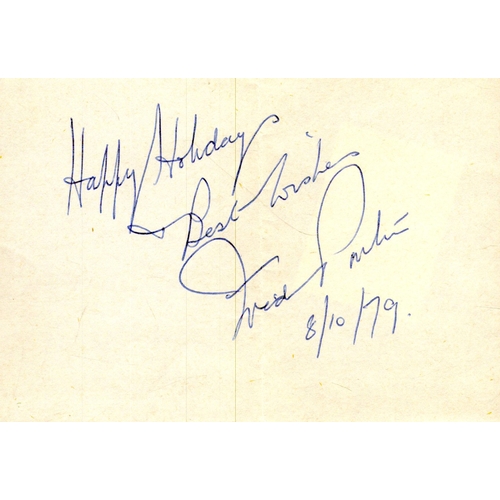 Happy Holidays
& Best Wishes
Fred Pontin
8/10/79.